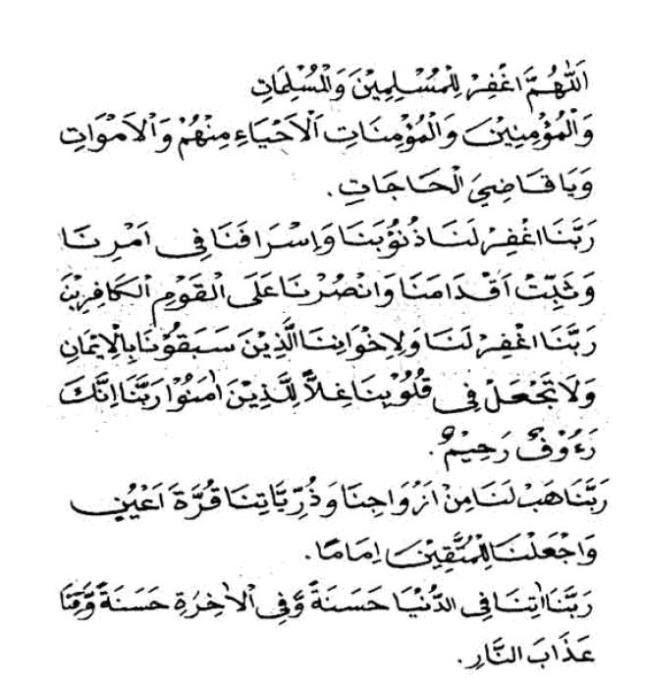 اَللّٰهُمَّ اغْفِرْ لِلْمُسْلِمِيْنَ وَالْمُسْلِمَاتِ
وَالْمُؤْمِنِيْنَ وَالْمُؤْمِنَاتِ اَلْاَحْيَاءِ مِنْهُمْ وَالْاَمْوَاتِ
وَيَا قَاضِيَ الْحَاجَاتِ.
رَبَّنَا اغْفِرْ لَنَا ذُنُوْبَنَا وَاِسْرَافَنَا فِى اَمْرِنَا
وَثَبِّتْ اَقْدَامَنَا وَانْصُرْنَا عَلَى الْقَوْمِ الْكَافِرِيْنَ
رَبَّنَا اغْفِرْ لَنَا وَلِاِخْوَانِنَا الَّذِيْنَ سَبَقُوْنَا بِالْاِيْمَانِ
وَلَا تَجْعَلْ فِى قُلُوْبِنَا غِلًّا لِلَّذِيْنَ اٰمَنُوْا رَبَّنَا اِنَّكَ
رَءُوْفٌ رَحِيْمٌ.
رَبَّنَا هَبْ لَنَا مِنْ اَزْوَاجِنَا وَذُرِّيَّاتِنَا قُرَّةَ اَعْيُنٍ
وَاجْعَلْنَا لِلْمُتَّقِيْنَ اِمَامًا.
رَبَّنَا اٰتِنَا فِى الدُّنْيَا حَسَنَةً وَّفِى الْاٰخِرَةِ حَسَنَةً وَّقِنَا
عَذَابَ النَّارِ.